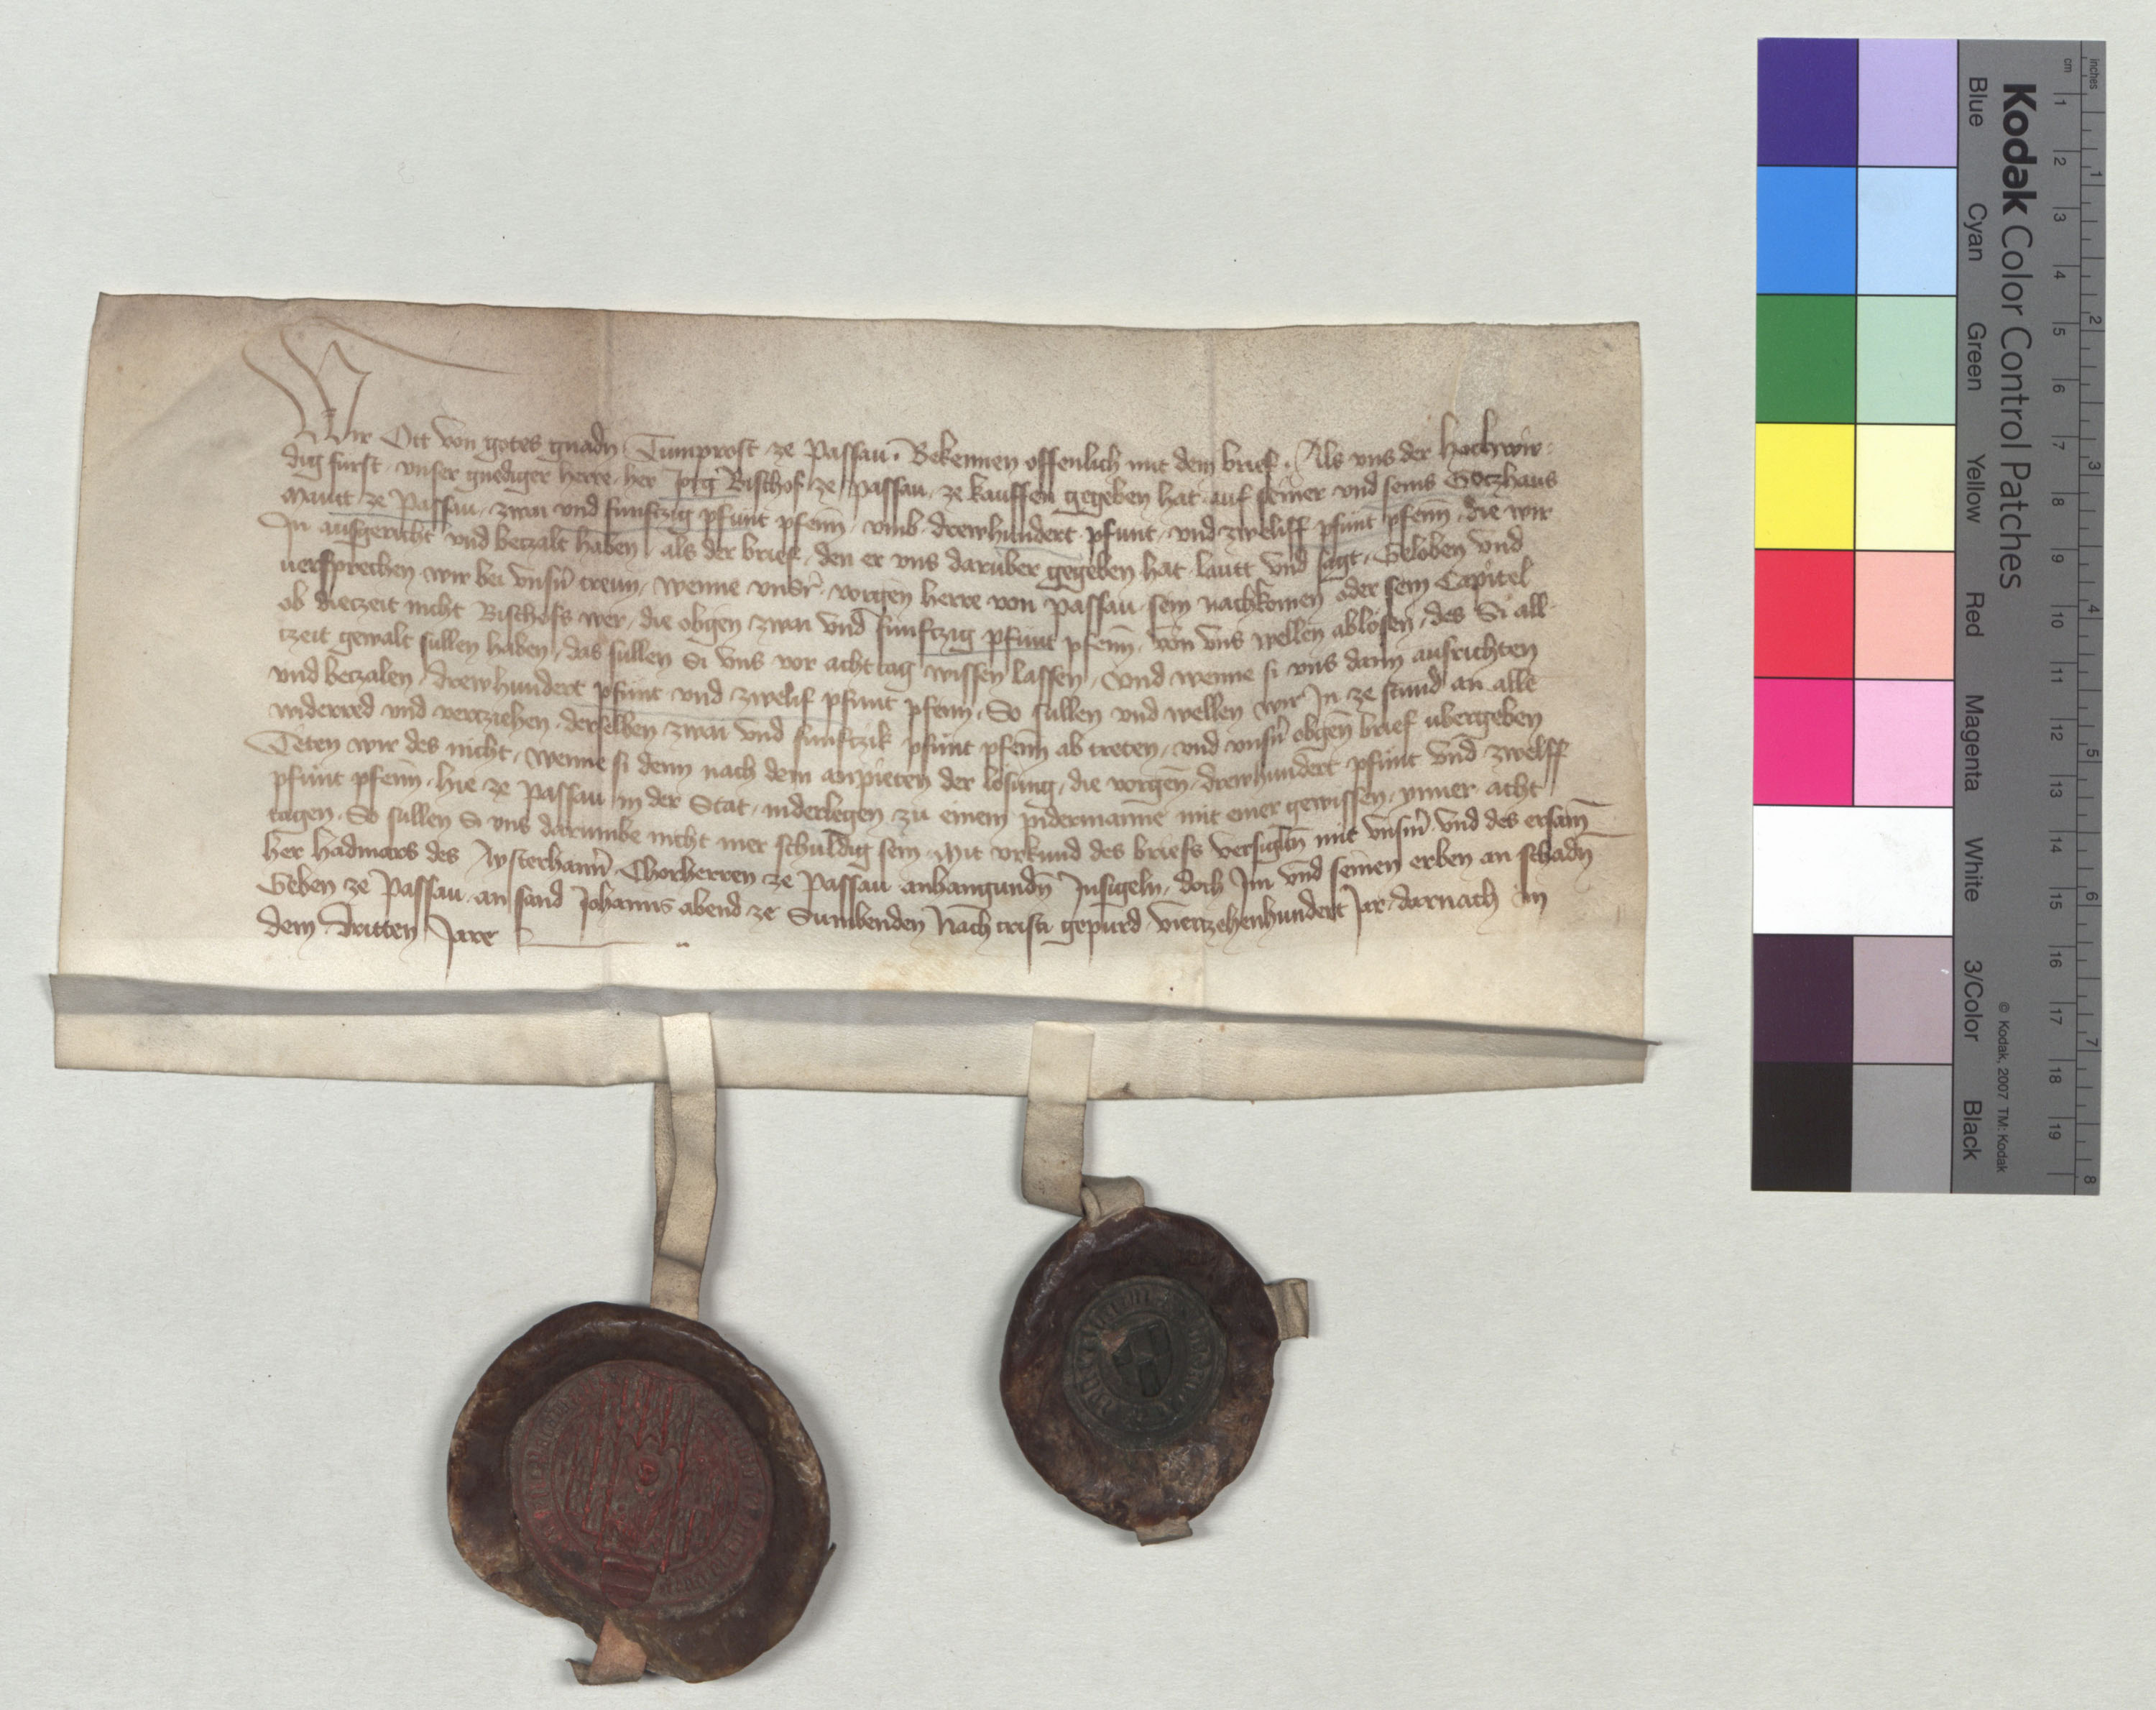 Wir Ott von gotes gnadn Tumprost ze Passau. Bekennen offenlich mit dem brief. Als vns der Hochwir-
dig furst, vnser gnediger herre, her Jorg Bischof ze Passau, ze kauffen gegeben hat auf seiner vnd seins Gotzhaus
Maut ze Passau, zwai vnd funftzig pfunt pfenn̄, vmb drewhundert pfunt, vnd zweliff pfunt pfenn̄, die wir
In ausgericht vnd betzalt haben, als der brief, den er vns daruber gegeben hat, lautt vnd sagt, Geloben vnd
uersprechen wir bei vnsn̄ treun, wenne vnser vorgen̄ herre von Passau, sein nachkomen oder sein Capitel
ob dietzeit nicht Bischofs wer, die obgen̄ zwai vnd funftzig pfunt pfenn̄, von vns wellen ablosen, des Si all-
tzeit gewalt sullen haben, das sullen Si vns vor acht tag wissen lassen, vnd wenne si vns dann ausrichten
vnd betzalen, drewhundert pfunt vnd zwelif pfunt pfenn̄, So sullen vnd wellen wir In ze stund an alle
widerred vnd vertziehen, derselben zwai vnd funftzik pfunt pfenn̄ ab treten, vnd vnsn̄ obgen̄ brief ubergeben
Teten wir des nicht, wenne si denn nach dem anpieten der losung, die vorgen̄ drewhundert pfunt vnd zwelff
pfunt pfenn̄, hie ze Passau in der Stat, niderlegen zu einem pidermanne mit einer gewissen, ynner acht
tagen, So sullen Si vns darumbe nicht mer schuldig sein, Mit vrkund des briefs versigltn̄ mit vnsm̄ vnd des ersam̄
her Hadmars des Aysterhaim̄ Chorherren ze Passau anhangundn̄ Insigeln, doch Im vnd seinen erben an schadn̄
Geben ze Passau, an sand Johanns abend ze Sunbenden Nach cristi gepurd viertzehenhundert Jar, darnach in
dem dritten Jare
Kodak Color Control Patches
Blue Cyan Green Yellow Red Magenta White 3/Color Black
© Kodak, 2007 TM: Kodak
inches 1 2 3 4 5 6 7 8
cm 1 2 3 4 5 6 7 8 9 10 11 12 13 14 15 16 17 18 19